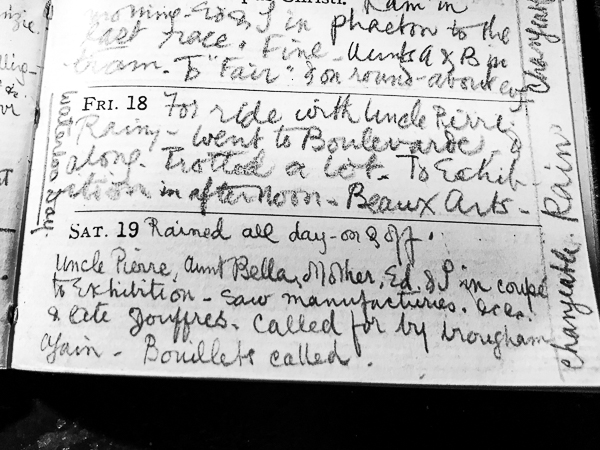 Rain in
morning. Ed & I in phaeton to the
last race. Fine - Aunts A & B in
tram. To "Fair" & on round-about
Changeable
FRI. 18 For ride with Uncle Pierre.
Rainy - went to Boulevards &
along. Trotted a lot. To Exhib-
ition in afternoon - Beaux Arts -
Waterloo Day.
Rain
SAT. 19 Rained all day - on & off.
Uncle Pierre, Aunt Bella, Mother, Ed. & I in coupe
to Exhibition - Saw manufactures. &c&c.
& ate Gouffres. Called for by brougham
again - Bouillets called.
Changeable